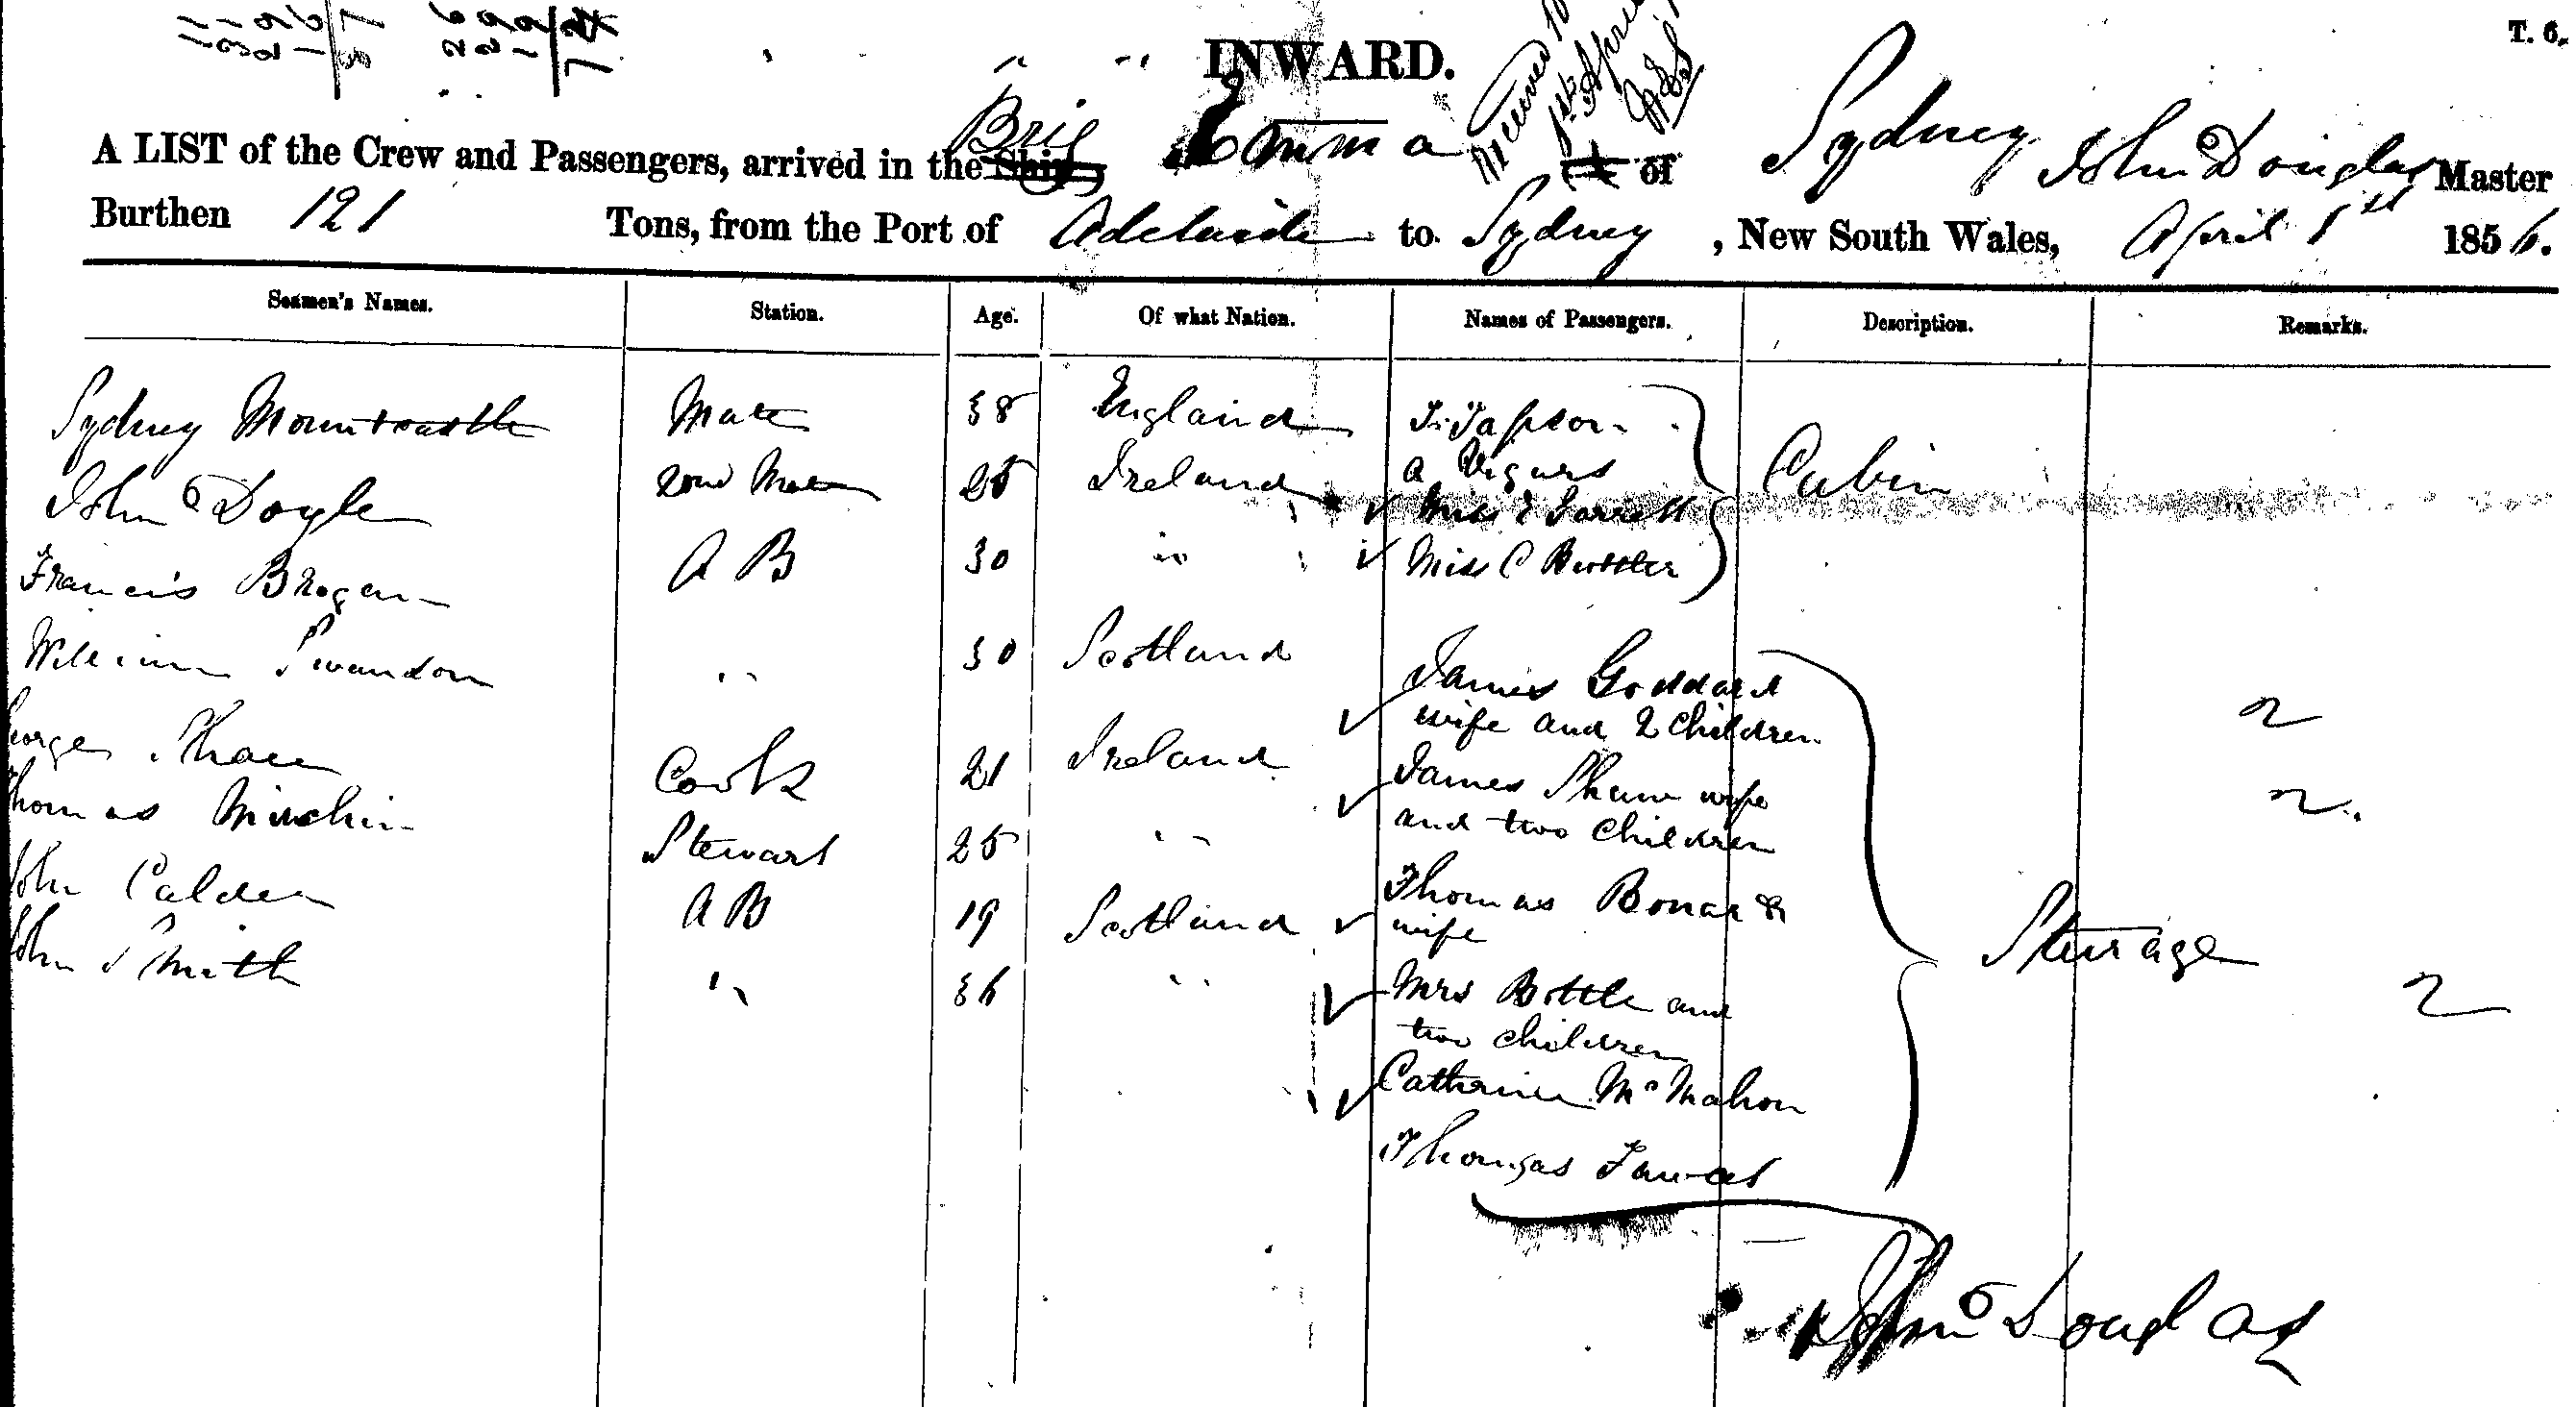 T. 6.
INWARD.
1st April
A LIST of the Crew and Passengers, arrived in the Ship Brig Emma of Sydney John Douglas Master
Burthen 121 Tons, from the Port of Adelaide to Sydney, New South Wales, April 1st 1856.
Seamen's Names. Station. Age. Of what Nation. Names of Passengers. Description. Remarks.
Sydney Mountcastle Mate 38 England
John Doyle 2nd Mate 25 Ireland
Francis Brogan A B 30 "
William Swandon " 30 Scotland
George Shaw Cook 21 Ireland
Thomas Minchin Stewart 25 "
John Calder A B 19 Scotland
John Smith " 36 "
T. Tapson
A Vigurs
Miss E Jarrett
Miss C Buttler
Cabin
James Goddard
wife and 2 children 2
James Shaw wife
and two children 2
Thomas Bonar &
wife
Mrs Bottle and
two children 2
Catherine McMahon
Thomas
Steerage
John Douglas